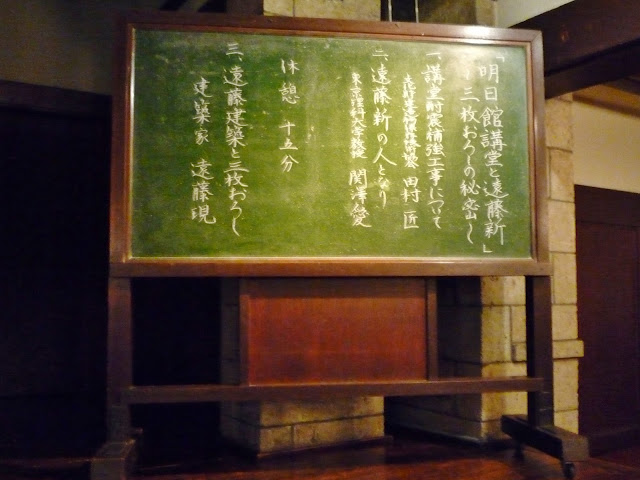 「明日館講堂と遠藤新」
〜三枚おろしの秘密〜
一、講堂耐震補強工事について
田村 匠
二、遠藤新の人となり
東京理科大学教授 関澤愛
休憩 十五分
三、遠藤建築と三枚おろし
建築家 遠藤現